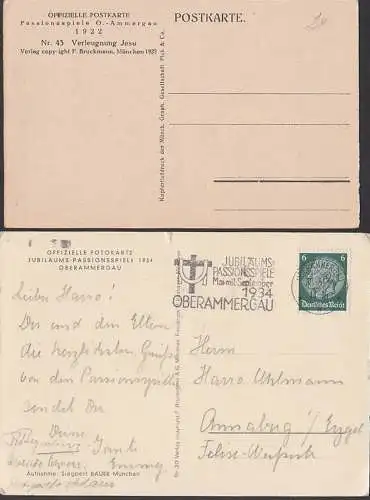 OFFIZIELLE POSTKARTE
Passionsspiele O.-Ammergau
1922
Nr. 43 Verleugnung Jesu
Verlag copyright F. Bruckmann, München 1922
POSTKARTE.
Kupfertiefdruck der Münch. Graph. Gesellschaft Pick & Co.
OFFIZIELLE FOTOKARTE
JUBILÄUMS-PASSIONSSPIELE 1934
OBERAMMERGAU
JUBILÄUMS-
PASSIONSSPIELE
Mai mit September
1934
OBERAMMERGAU
6 6
Deutsches Reich
Lieber Hanno!
Dir und den Eltern
die herzlichsten Grüße
von den Passionsspielen
sendet Dir
Deine
Tante
Emmy
Herrn
Hanno Uhlmann
Annaberg i/ Erzgeb
Aufnahme: Siegbert BAUER München